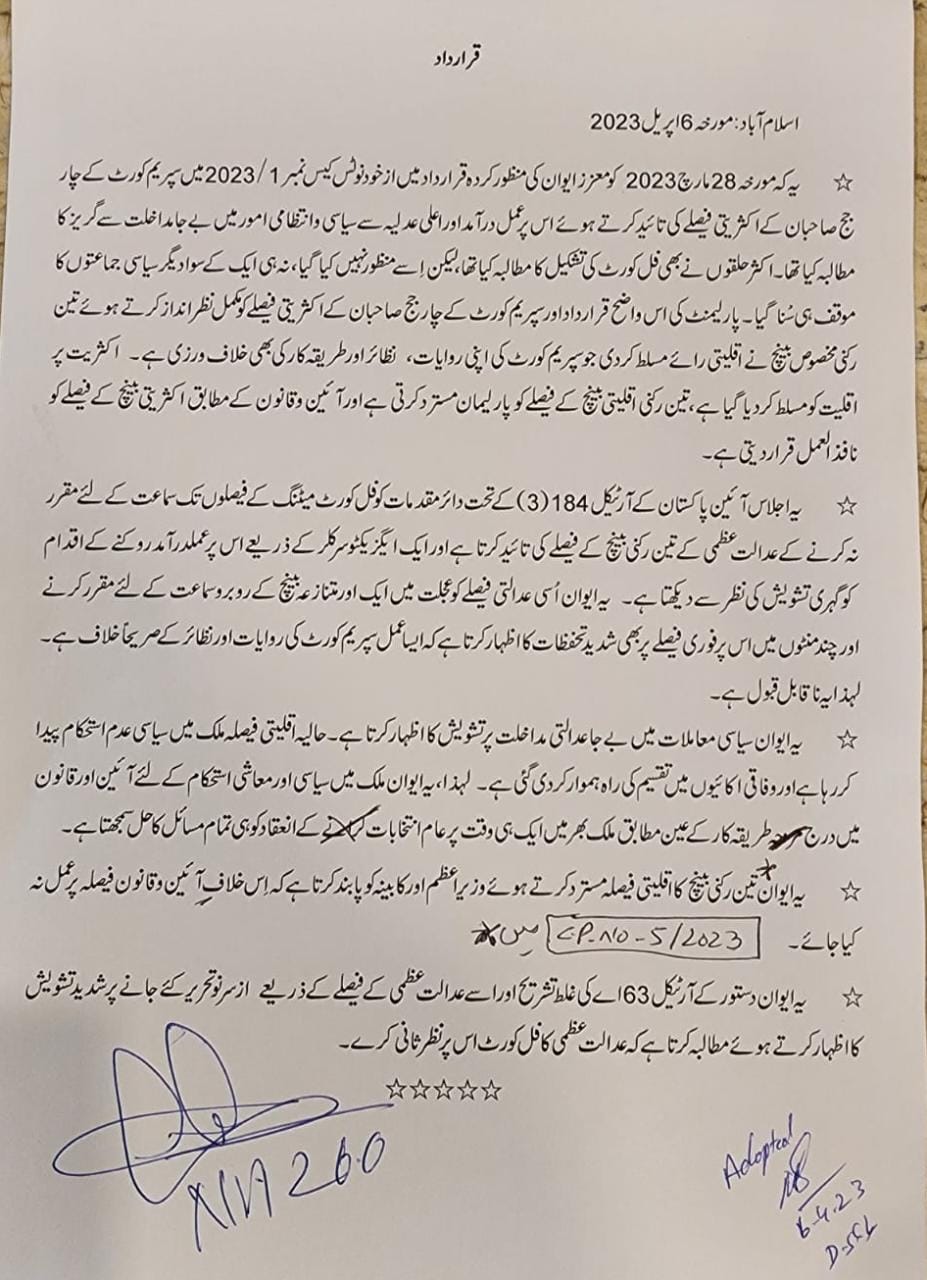 قرارداد
اسلام آباد: مورخہ 6 اپریل 2023
☆ یہ کہ مورخہ 28 مارچ 2023 کو معزز ایوان کی منظور کردہ قرارداد میں از خود نوٹس کیس نمبر 1/2023 میں سپریم کورٹ کے چار
جج صاحبان کے اکثریتی فیصلے کی تائید کرتے ہوئے اس پر عمل درآمد اور اعلیٰ عدلیہ سے سیاسی و انتظامی امور میں بے جا مداخلت سے گریز کا
مطالبہ کیا تھا۔ اکثر حلقوں نے بھی فل کورٹ کی تشکیل کا مطالبہ کیا تھا، لیکن اِسے منظور نہیں کیا گیا، نہ ہی ایک کے سوا دیگر سیاسی جماعتوں کا
موقف ہی سُنا گیا۔ پارلیمنٹ کی اس واضح قرارداد اور سپریم کورٹ کے چار جج صاحبان کے اکثریتی فیصلے کو مکمل نظر انداز کرتے ہوئے تین
رکنی مخصوص بینچ نے اقلیتی رائے مسلط کردی جو سپریم کورٹ کی اپنی روایات، نظائر اور طریقہ کار کی بھی خلاف ورزی ہے۔ اکثریت پر
اقلیت کو مسلط کر دیا گیا ہے، تین رکنی اقلیتی بینچ کے فیصلے کو پارلیمان مسترد کرتی ہے اور آئین و قانون کے مطابق اکثریتی بینچ کے فیصلے کو
نافذ العمل قرار دیتی ہے۔
☆ یہ اجلاس آئین پاکستان کے آرٹیکل 184 (3) کے تحت دائر مقدمات کو فل کورٹ میٹنگ کے فیصلوں تک سماعت کے لئے مقرر
نہ کرنے کے عدالت عظمی کے تین رکنی بینچ کے فیصلے کی تائید کرتا ہے اور ایک ایگزیکٹو سرکلر کے ذریعے اس پر عملدرآمد روکنے کے اقدام
کو گہری تشویش کی نظر سے دیکھتا ہے۔ یہ ایوان اُسی عدالتی فیصلے کو عجلت میں ایک اور متنازعہ بینچ کے روبرو سماعت کے لئے مقرر کرنے
اور چند منٹوں میں اس پر فوری فیصلے پر بھی شدید تحفظات کا اظہار کرتا ہے کہ ایسا عمل سپریم کورٹ کی روایات اور نظائر کے صریحاً خلاف ہے۔
لہذا یہ ناقابل قبول ہے۔
☆ یہ ایوان سیاسی معاملات میں بے جا عدالتی مداخلت پر تشویش کا اظہار کرتا ہے۔ حالیہ اقلیتی فیصلہ ملک میں سیاسی عدم استحکام پیدا
کر رہا ہے اور وفاقی اکائیوں میں تقسیم کی راہ ہموار کر دی گئی ہے۔ لہذا، یہ ایوان ملک میں سیاسی اور معاشی استحکام کے لئے آئین اور قانون
میں درج طریقہ کار کے عین مطابق ملک بھر میں ایک ہی وقت پر عام انتخابات کے انعقاد کو ہی تمام مسائل کا حل سمجھتا ہے۔
☆ یہ ایوان تین رکنی بینچ کا اقلیتی فیصلہ مسترد کرتے ہوئے وزیراعظم اور کابینہ کو پابند کرتا ہے کہ اِس خلافِ آئین و قانون فیصلہ پر عمل نہ
کیا جائے۔ C.P-NO-5/2023 میں
☆ یہ ایوان دستور کے آرٹیکل 63 اے کی غلط تشریح اور اسے عدالت عظمی کے فیصلے کے ذریعے ازسرنو تحریر کئے جانے پر شدید تشویش
کا اظہار کرتے ہوئے مطالبہ کرتا ہے کہ عدالت عظمی کا فل کورٹ اس پر نظر ثانی کرے۔
☆☆☆☆☆
NA 260
Adopted
6-4-23